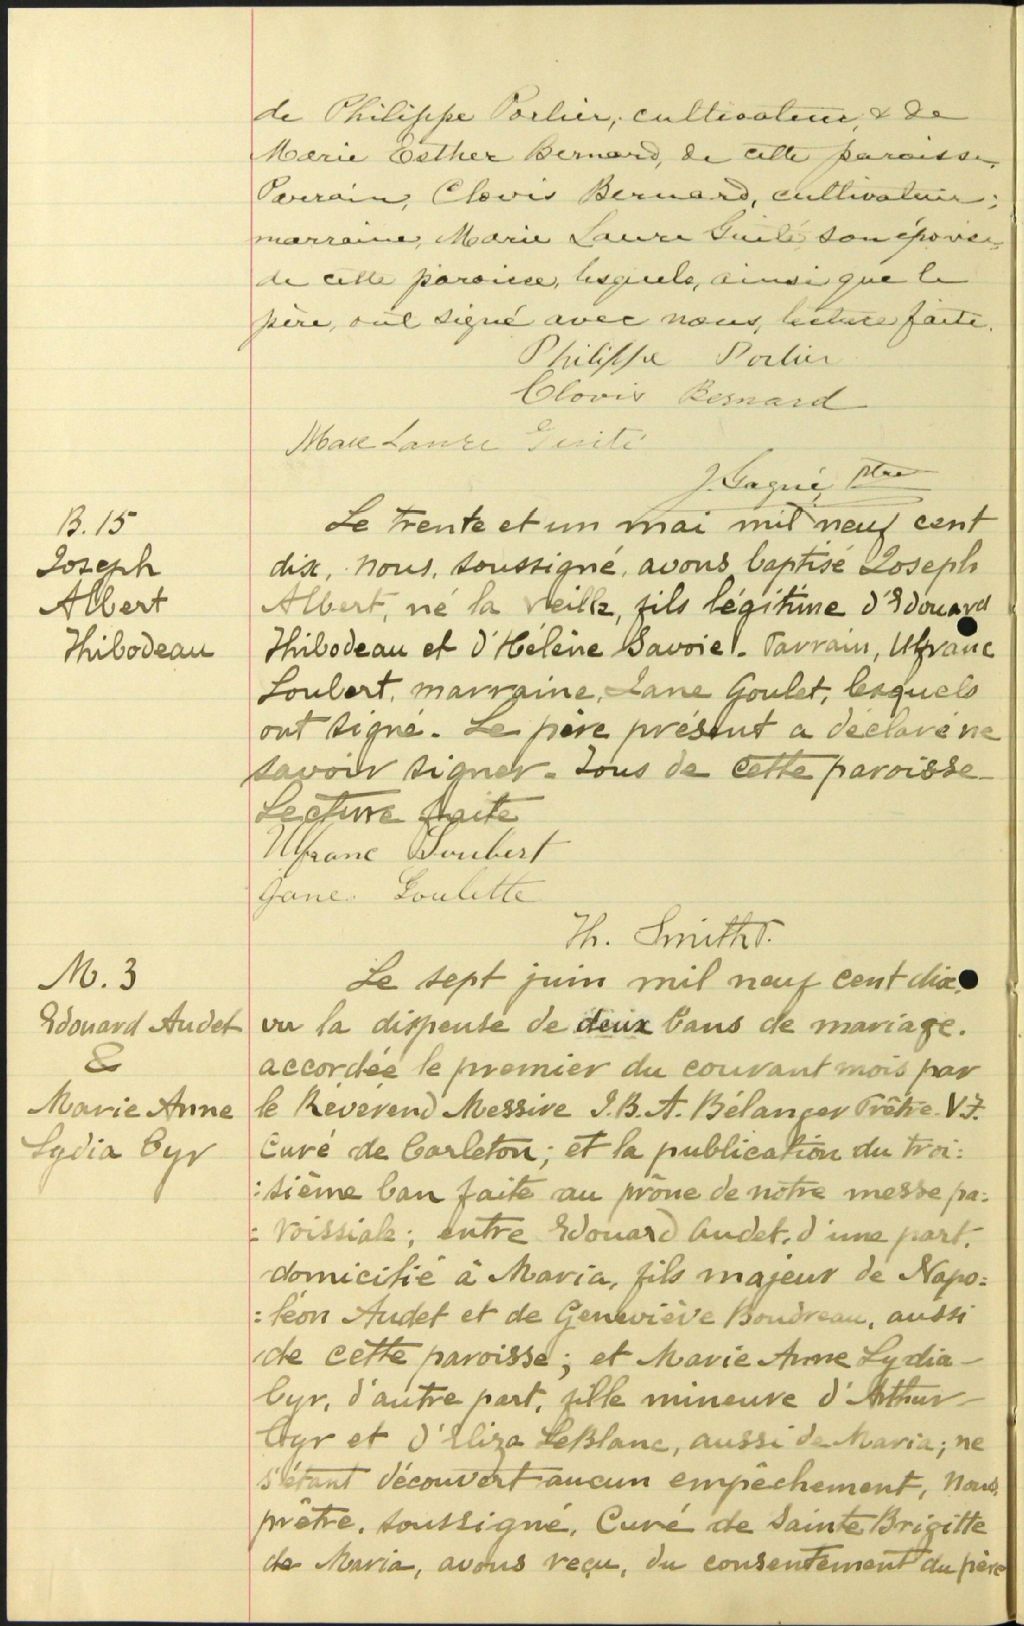 de Philippe Porlier, cultivateur, & de
Marie Esther Bernard, de cette paroisse.
Parrain, Clovis Bernard, cultivateur;
marraine, Marie Laure Guité son épouse,
de cette paroisse, lesquels, ainsi que le
père, ont signé avec nous, lecture faite.
Philippe Porlier
Clovis Bernard
Marie Laure Guité
J. Gagné, Ptre
B. 15
Joseph
Albert
Thibodeau
Le trente et un mai mil neuf cent
dix, nous, soussigné, avons baptisé Joseph
Albert, né la veille, fils légitime d'Edouard
Thibodeau et d'Hélène Savoie. Parrain, Ufranc
Loubert, marraine, Jane Goulet, lesquels
ont signé. Le père présent a déclaré ne
savoir signer. Tous de cette paroisse
Lecture faite
Ufranc Loubert
Jane Goulette
Th. Smith P.
M. 3
Edouard Audet
&
Marie Anne
Lydia Cyr
Le sept juin mil neuf cent dix,
vu la dispense de deux bans de mariage.
accordée le premier du courant mois par
le Révérend Messire J.B.A. Bélanger Prêtre V.F.
Curé de Carleton; et la publication du troi:
:sième ban faite au prône de notre messe pa:
:roissiale; entre Edouard Audet, d'une part,
domicilié à Maria, fils majeur de Napo:
:léon Audet et de Geneviève Boudreau, aussi
de cette paroisse; et Marie Anne Lydia
Cyr, d'autre part, fille mineure d'Arthur
Cyr et d'Eliza LeBlanc, aussi de Maria; ne
s'étant découvert aucun empêchement, Nous,
prêtre, soussigné, Curé de Sainte Brigitte
de Maria, avons reçu, du consentement du père